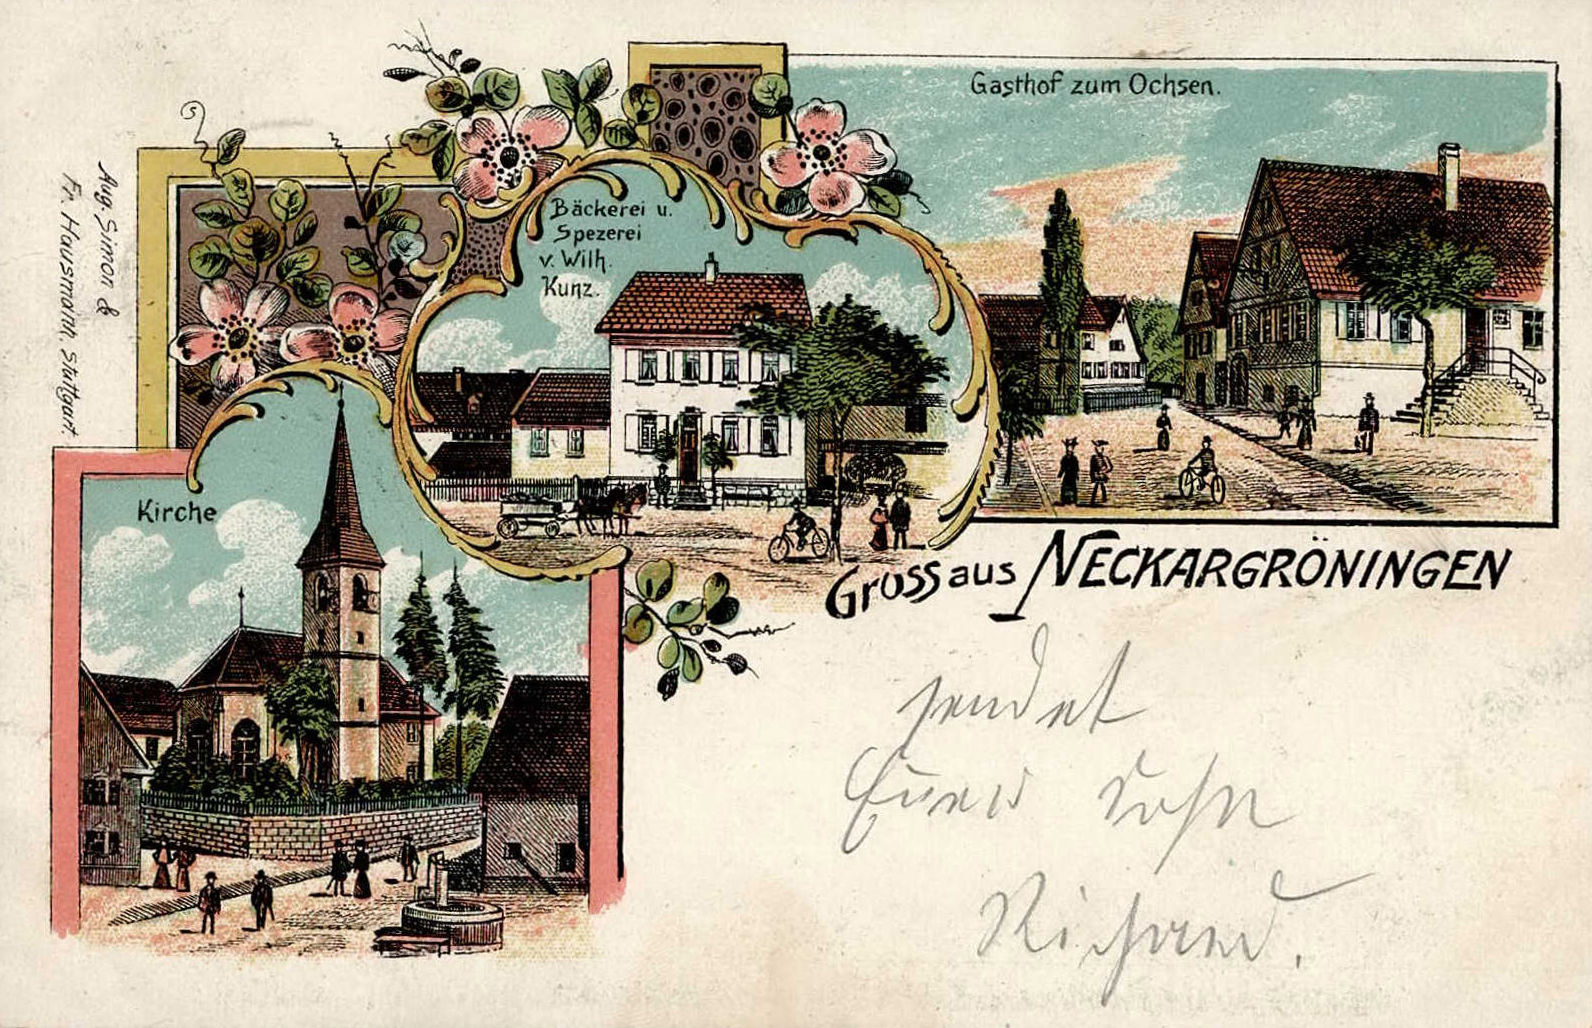 Gasthof zum Ochsen.
Bäckerei u.
Spezerei
v. Wilh.
Kunz.
Kirche
Aug. Simon &
Fr. Hausmann. Stuttgart.
Gruss aus NECKARGRÖNINGEN
sendet
Euer Sohn
Richard.